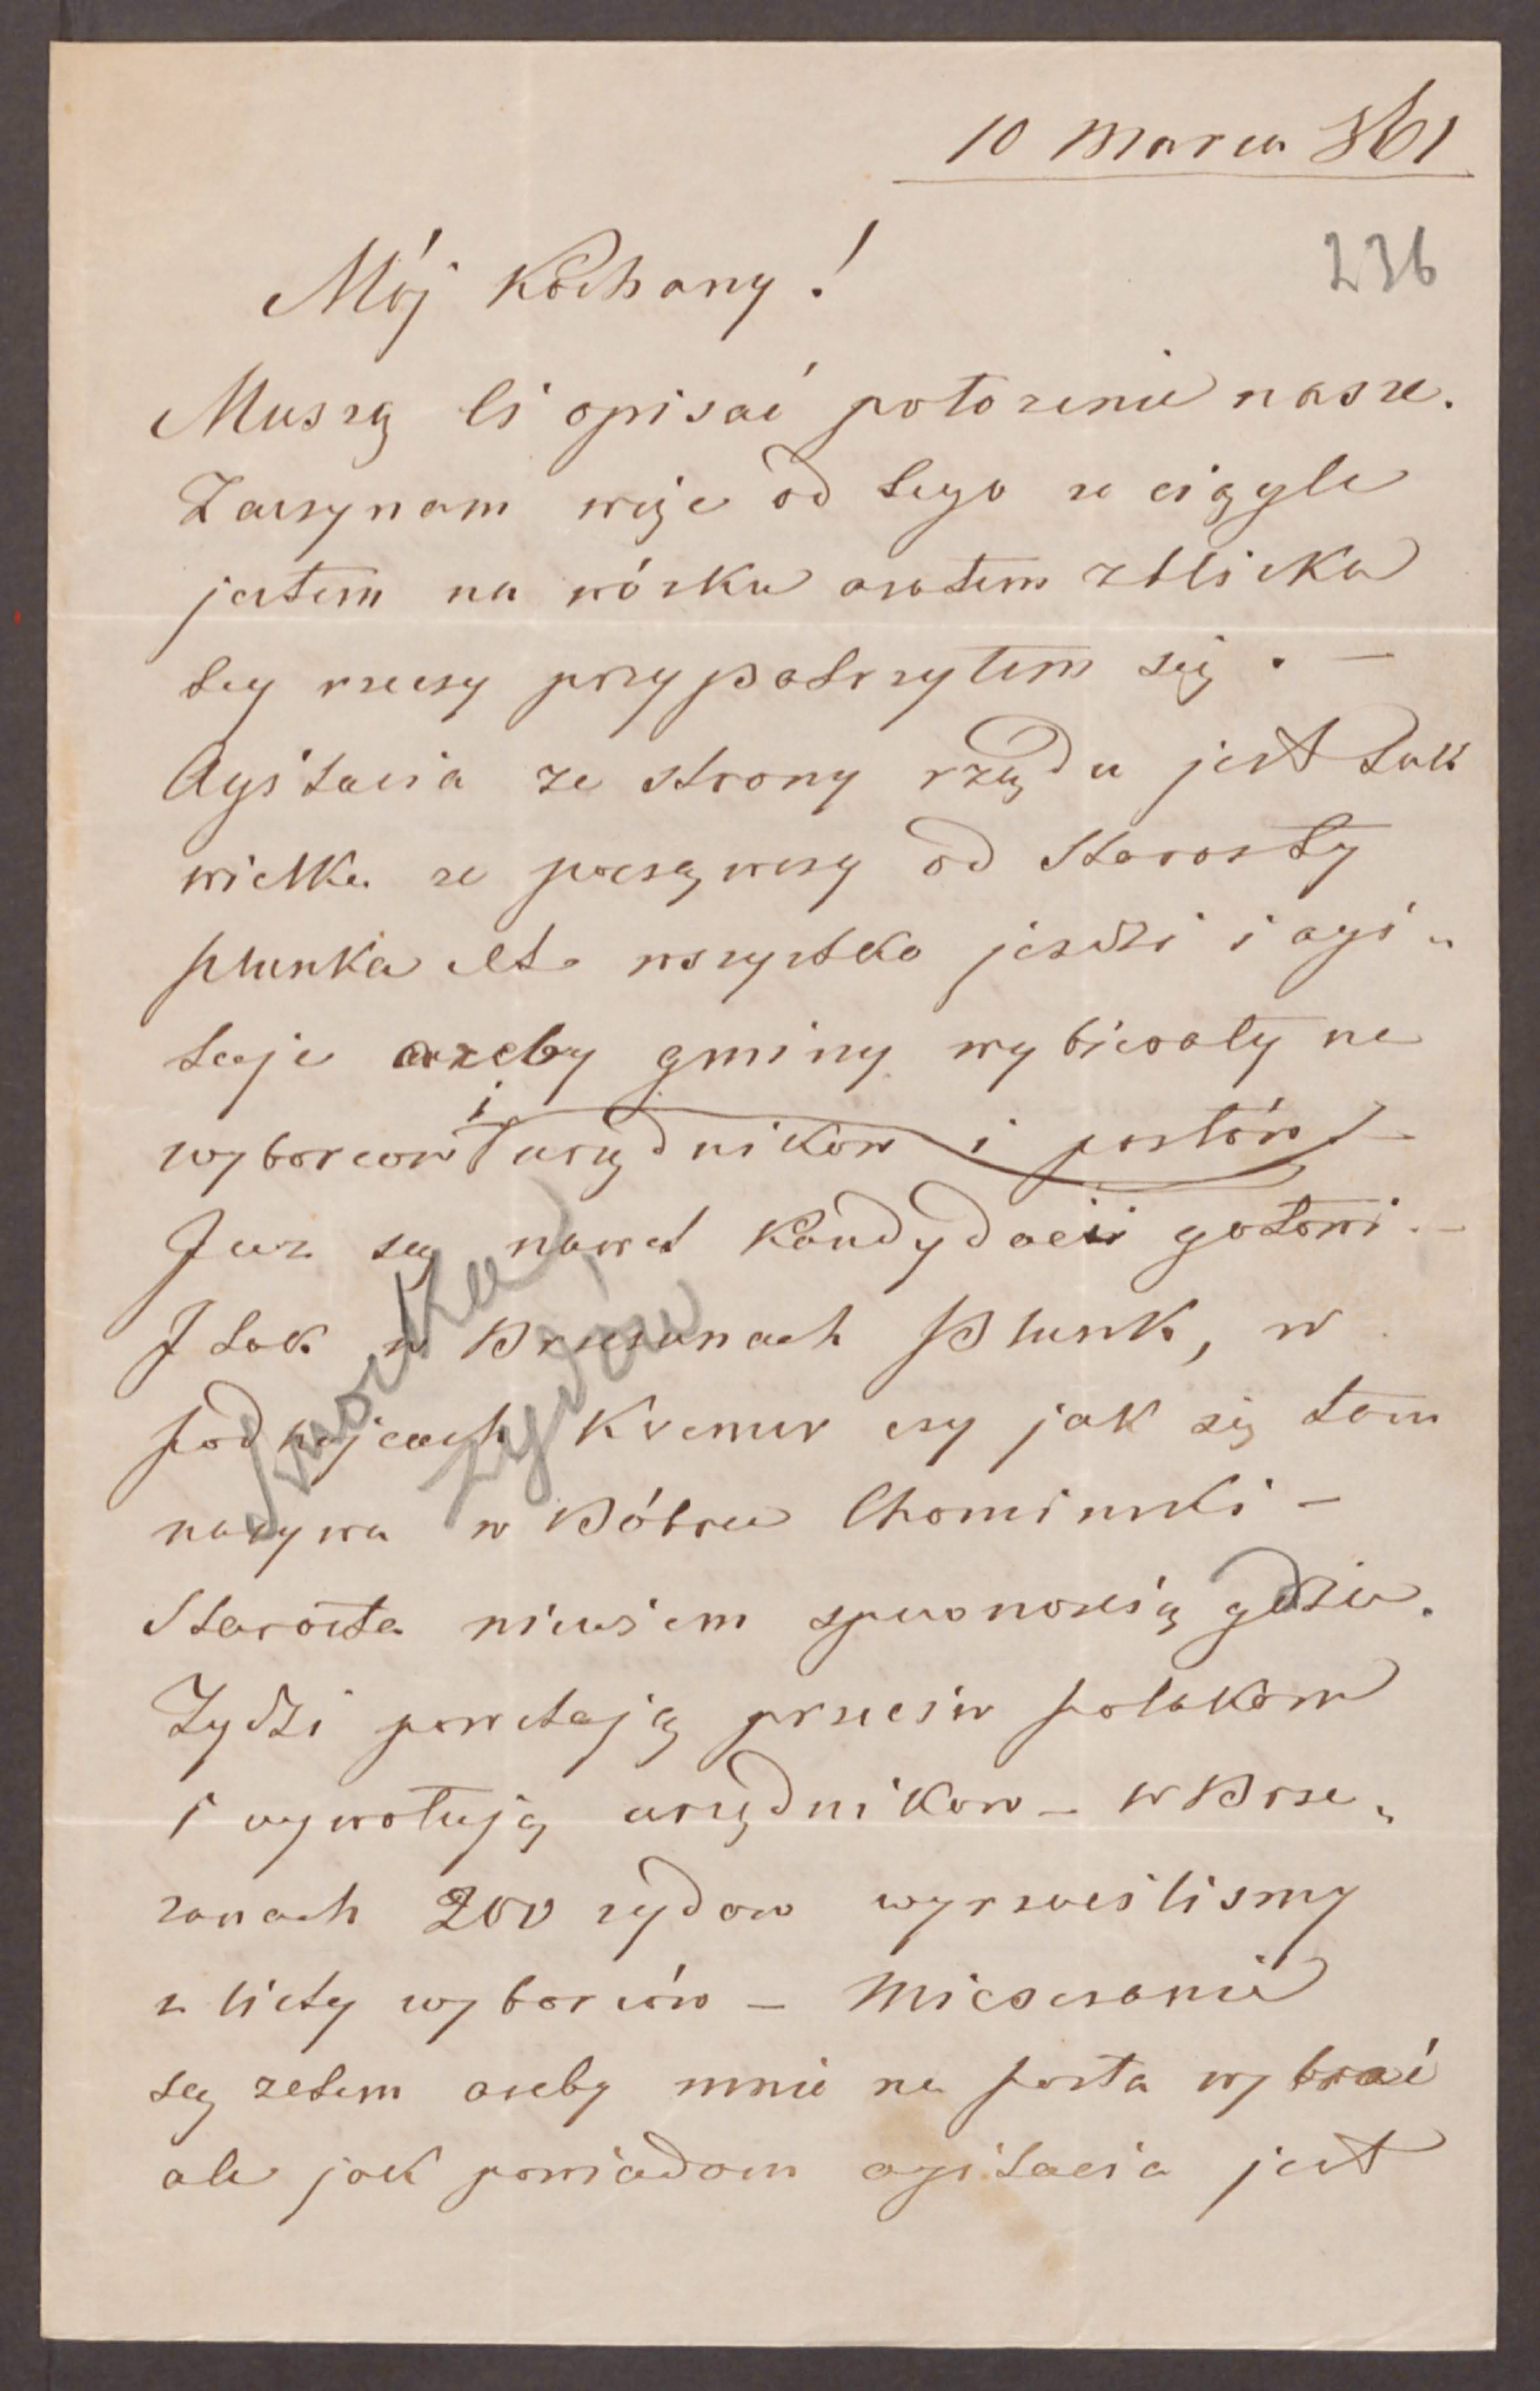 10 Marca 861
236
Mój Kochany!
Muszę Ci opisać położenie nasze.
Zaczynam więc od tego ze ciągle
jestem na wózku a zatem zbliska
tey rzeczy przypatrzyłem się. —
Agitacia ze strony rządu jest tak
wielka ze począwszy od Starosty
Plunka etc wszystko jezdzi i agi„
tuje azeby gminy wybierały na
wyborcow i urzędnikow i posłów —
Juz są nawet Kandydacii gotowi. —
I tak w Brzezanach Plunk, w
Podhajcach Kremer czy jak się tam
nazywa w Bóbrce Chominski —
Starosta niewiem z pewnoscią gdzie.
Żydzi powstają przeciw Polakom
i wywołują urzędnikow — w Brze„
zanach 200 zydow wyrzuciliśmy
z listy wyborców — Mieszczanie
są zatem azeby mnie na posła wybrać
ale jak powiadam agitacia jest
żydów